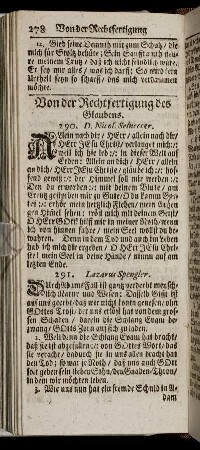 278 Von der Rechtfertigung
12. Gieb seine Demuth mir zum Schutz / die
mich für Stoltz behüte; Sein Sanfftmuth
meinem Trutz / daß ich nicht feindlich wüte.
Er sey mir alles / was ich darff: So wird kein
Urtheil seyn so scharff / das mich verdammen
möchte.
Von der Rechtfertigung des
Glaubens.
290. D. Nicol. Selneccer.
Allein nach dir / HErr / allein nach dir /
HErr JEsu Christ / verlanget mich:
weil ich hie leb: in dieser Welt auf
Erden: Allein an dich / HErr / allein
an dich / HErr JEsu Christ / gläube ich:
hoffend gewiß: der Himmel soll mir werden:
Den du erworben: mit deinem Blute / am
Creutz gestorben mir zu Gute / Du
ster: erhör mein hertzlich Flehen /
gen Höruf sehen: daß mich mit deinem Geist /
O HErr GOtt hilff mir in meiner Noth / wenn
ich von hinnen fahre / mein Seel wollst du be-
wahren. Denn in dem Tod und auch im Leben
hab ich mich dir ergeben / O HErr JEsu Chri-
ste / mein Seel in deine Hände / nimm auf am
letzten Ende.
291. Lazarus Spengler.
Durch Adams Fall ist gantz verderbt mensch-
lich Natur und Wesen: Dasselb Gifft ist
auf uns geerbt / daß wir nicht konten genesen / ohn
GOttes Trost / der uns erlöst hat von dem gros-
sen Schaden / darein die Schlang Evam be-
zwang / GOtts Zorn auf sich zu laden.
2. Weil denn die Schlang Evam hat bracht /
daß sie ist abgefallen: von GOttes Wort / das
sie veracht / dadurch sie in uns allen bracht hat
den Tod; so war je Noth / daß uns auch GOtt
solt geben sein lieben Sohn / den Gnaden-Thron /
in dem wir möchten leben.
3. Wie uns nun hat ein fremde Schuld in A-
dam